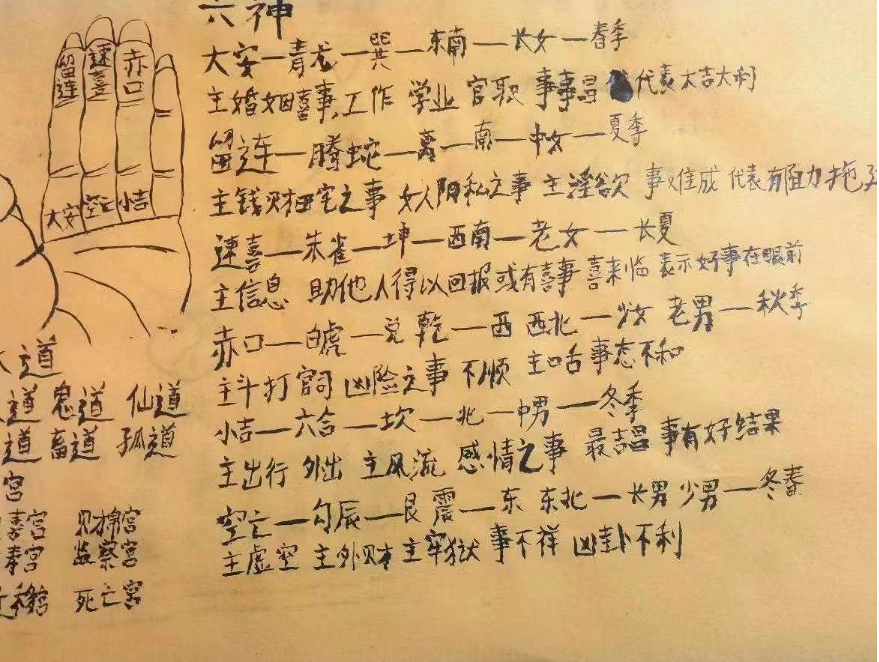 六神
大安一青龙一巽一东南一长女一春季
主婚姻喜事,工作 学业 官职 事事昌 代表大吉大利
留连一腾蛇一离一南一中女一夏季
主钱财田宅之事 女人阴私之事 主淫欲 事难成 代表有阻力拖
速喜一朱雀一坤一西南一老女一长夏
主信息 助他人得以回报或有喜事 喜来临 表示好事在眼前
赤口一白虎一兑 乾一西 西北一少女 老男一秋季
主斗打官司 凶险之事 不顺 主口舌 事态不和
小吉一六合一坎一北一中男一冬季
主出行 外出 主风流 感情之事 最吉昌 事有好结果
空亡一勾辰一艮 震一东 东北一长男 少男一冬春
主虚空 主外财 主牢狱 事不祥 凶卦不利
留连 速喜 赤口
大安 空亡 小吉
道
道 鬼道 仙道
道 畜道 孤道
宫
宫 财帛宫
宫 监察宫
移宫 死亡宫